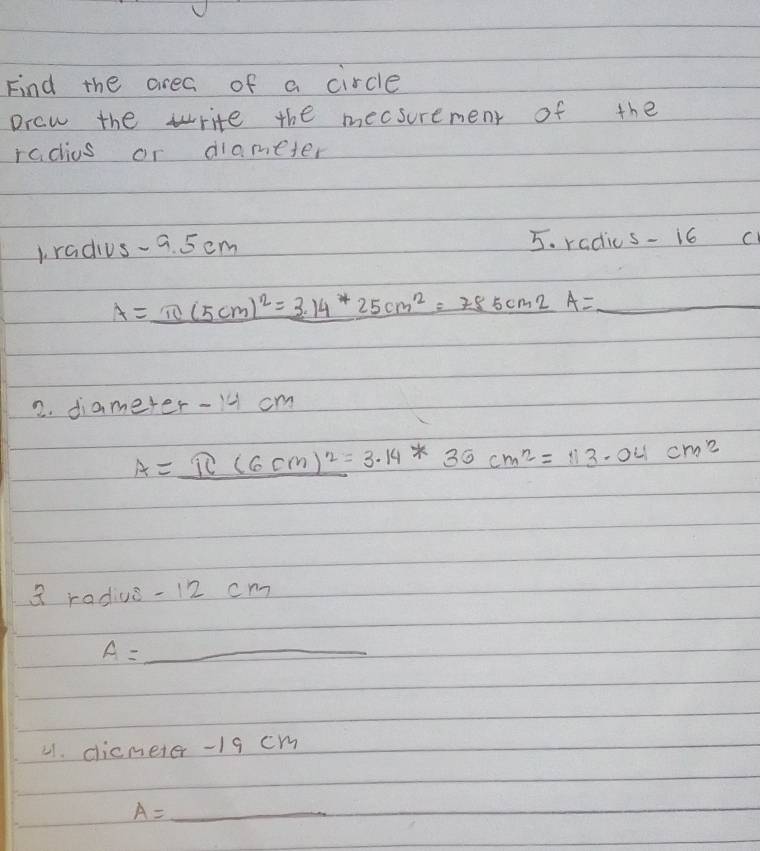 Find the area of a circle
Draw the write the measurement of the
radius or diameter
1. radius - 9.5 cm
5. radius - 16 c
A = π (5cm)² = 3.14 * 25cm² = 785cm2 A=
2. diameter - 14 cm
A = π (6cm)² = 3.14 * 36 cm² = 113.04 cm²
3 radius - 12 cm
A =
4. diameter - 19 cm
A =